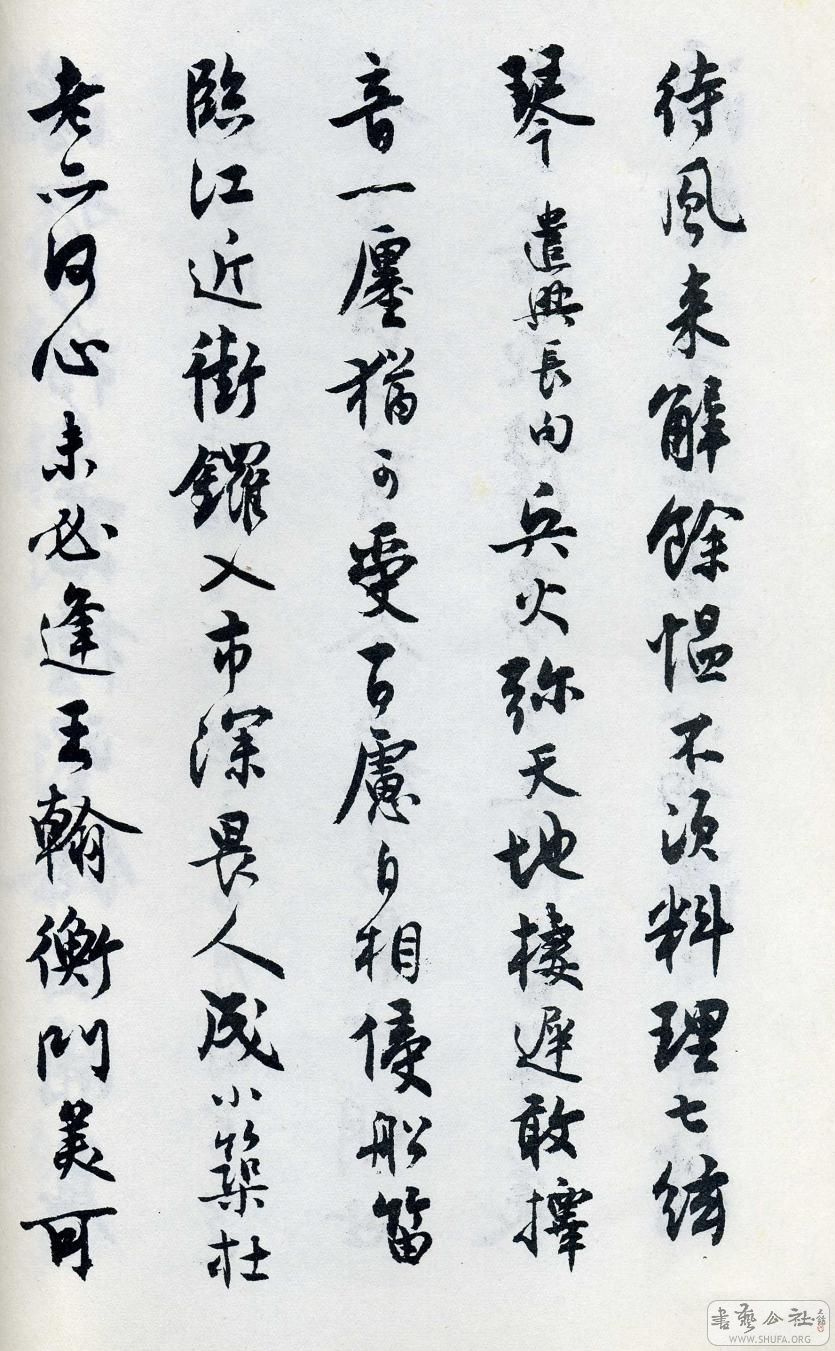 待風来解餘愠不須料理七絃
琴 遣興長句 兵火弥天地棲遲敢擇
音一廛猶可受百慮自相侵船笛
臨江近街鑼入市深畏人成小築杜
老亦何心未必逢王翰衡門美可
書藝公社
WWW.SHUFA.ORG